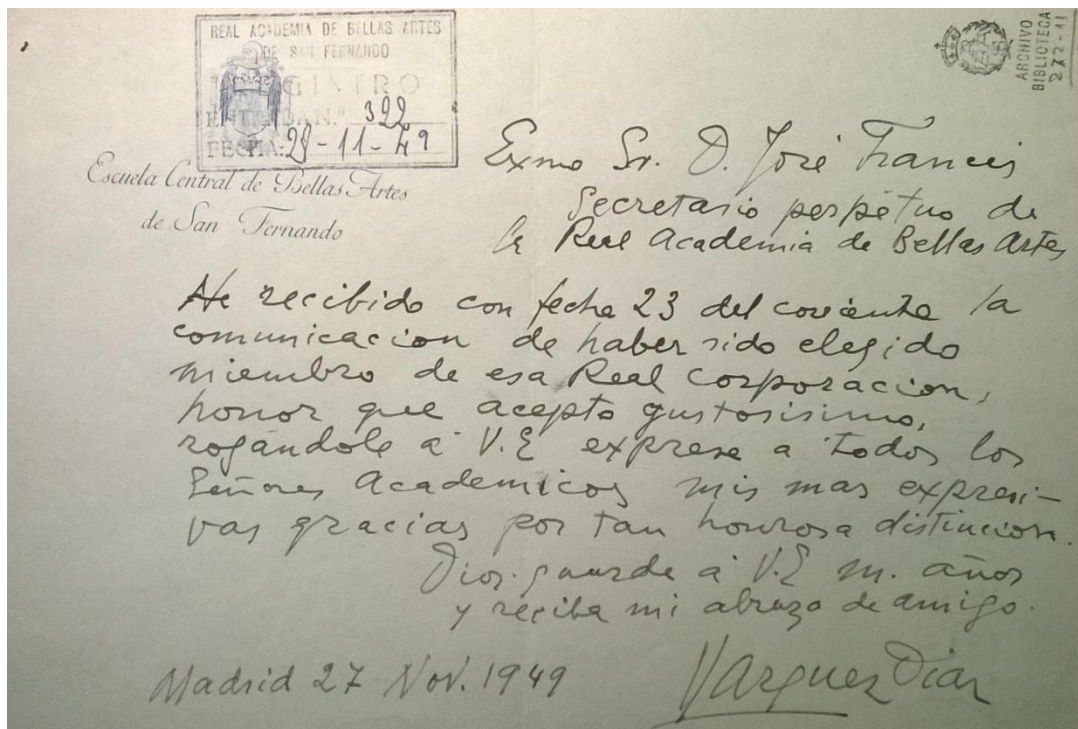 REAL ACADEMIA DE BELLAS ARTES
DE SAN FERNANDO
REGISTRO
ENTRADA N.º 322
FECHA: 29-11-49
ARCHIVO
BIBLIOTECA
272-11
Escuela Central de Bellas Artes
de San Fernando
Exmo Sr. D. José Francés
Secretario perpétuo de
la Real Academia de Bellas Artes
He recibido con fecha 23 del corriente la
comunicacion de haber sido elegido
miembro de esa Real Corporacion,
honor que acepto gustosisimo,
rogándole a V.E exprese a todos los
Señores Academicos mis mas expresi-
vas gracias por tan honrosa distincion.
Dios guarde a V.E m. años
y reciba mi abrazo de amigo.
Madrid 27 Nov. 1949
Vazquez Diaz